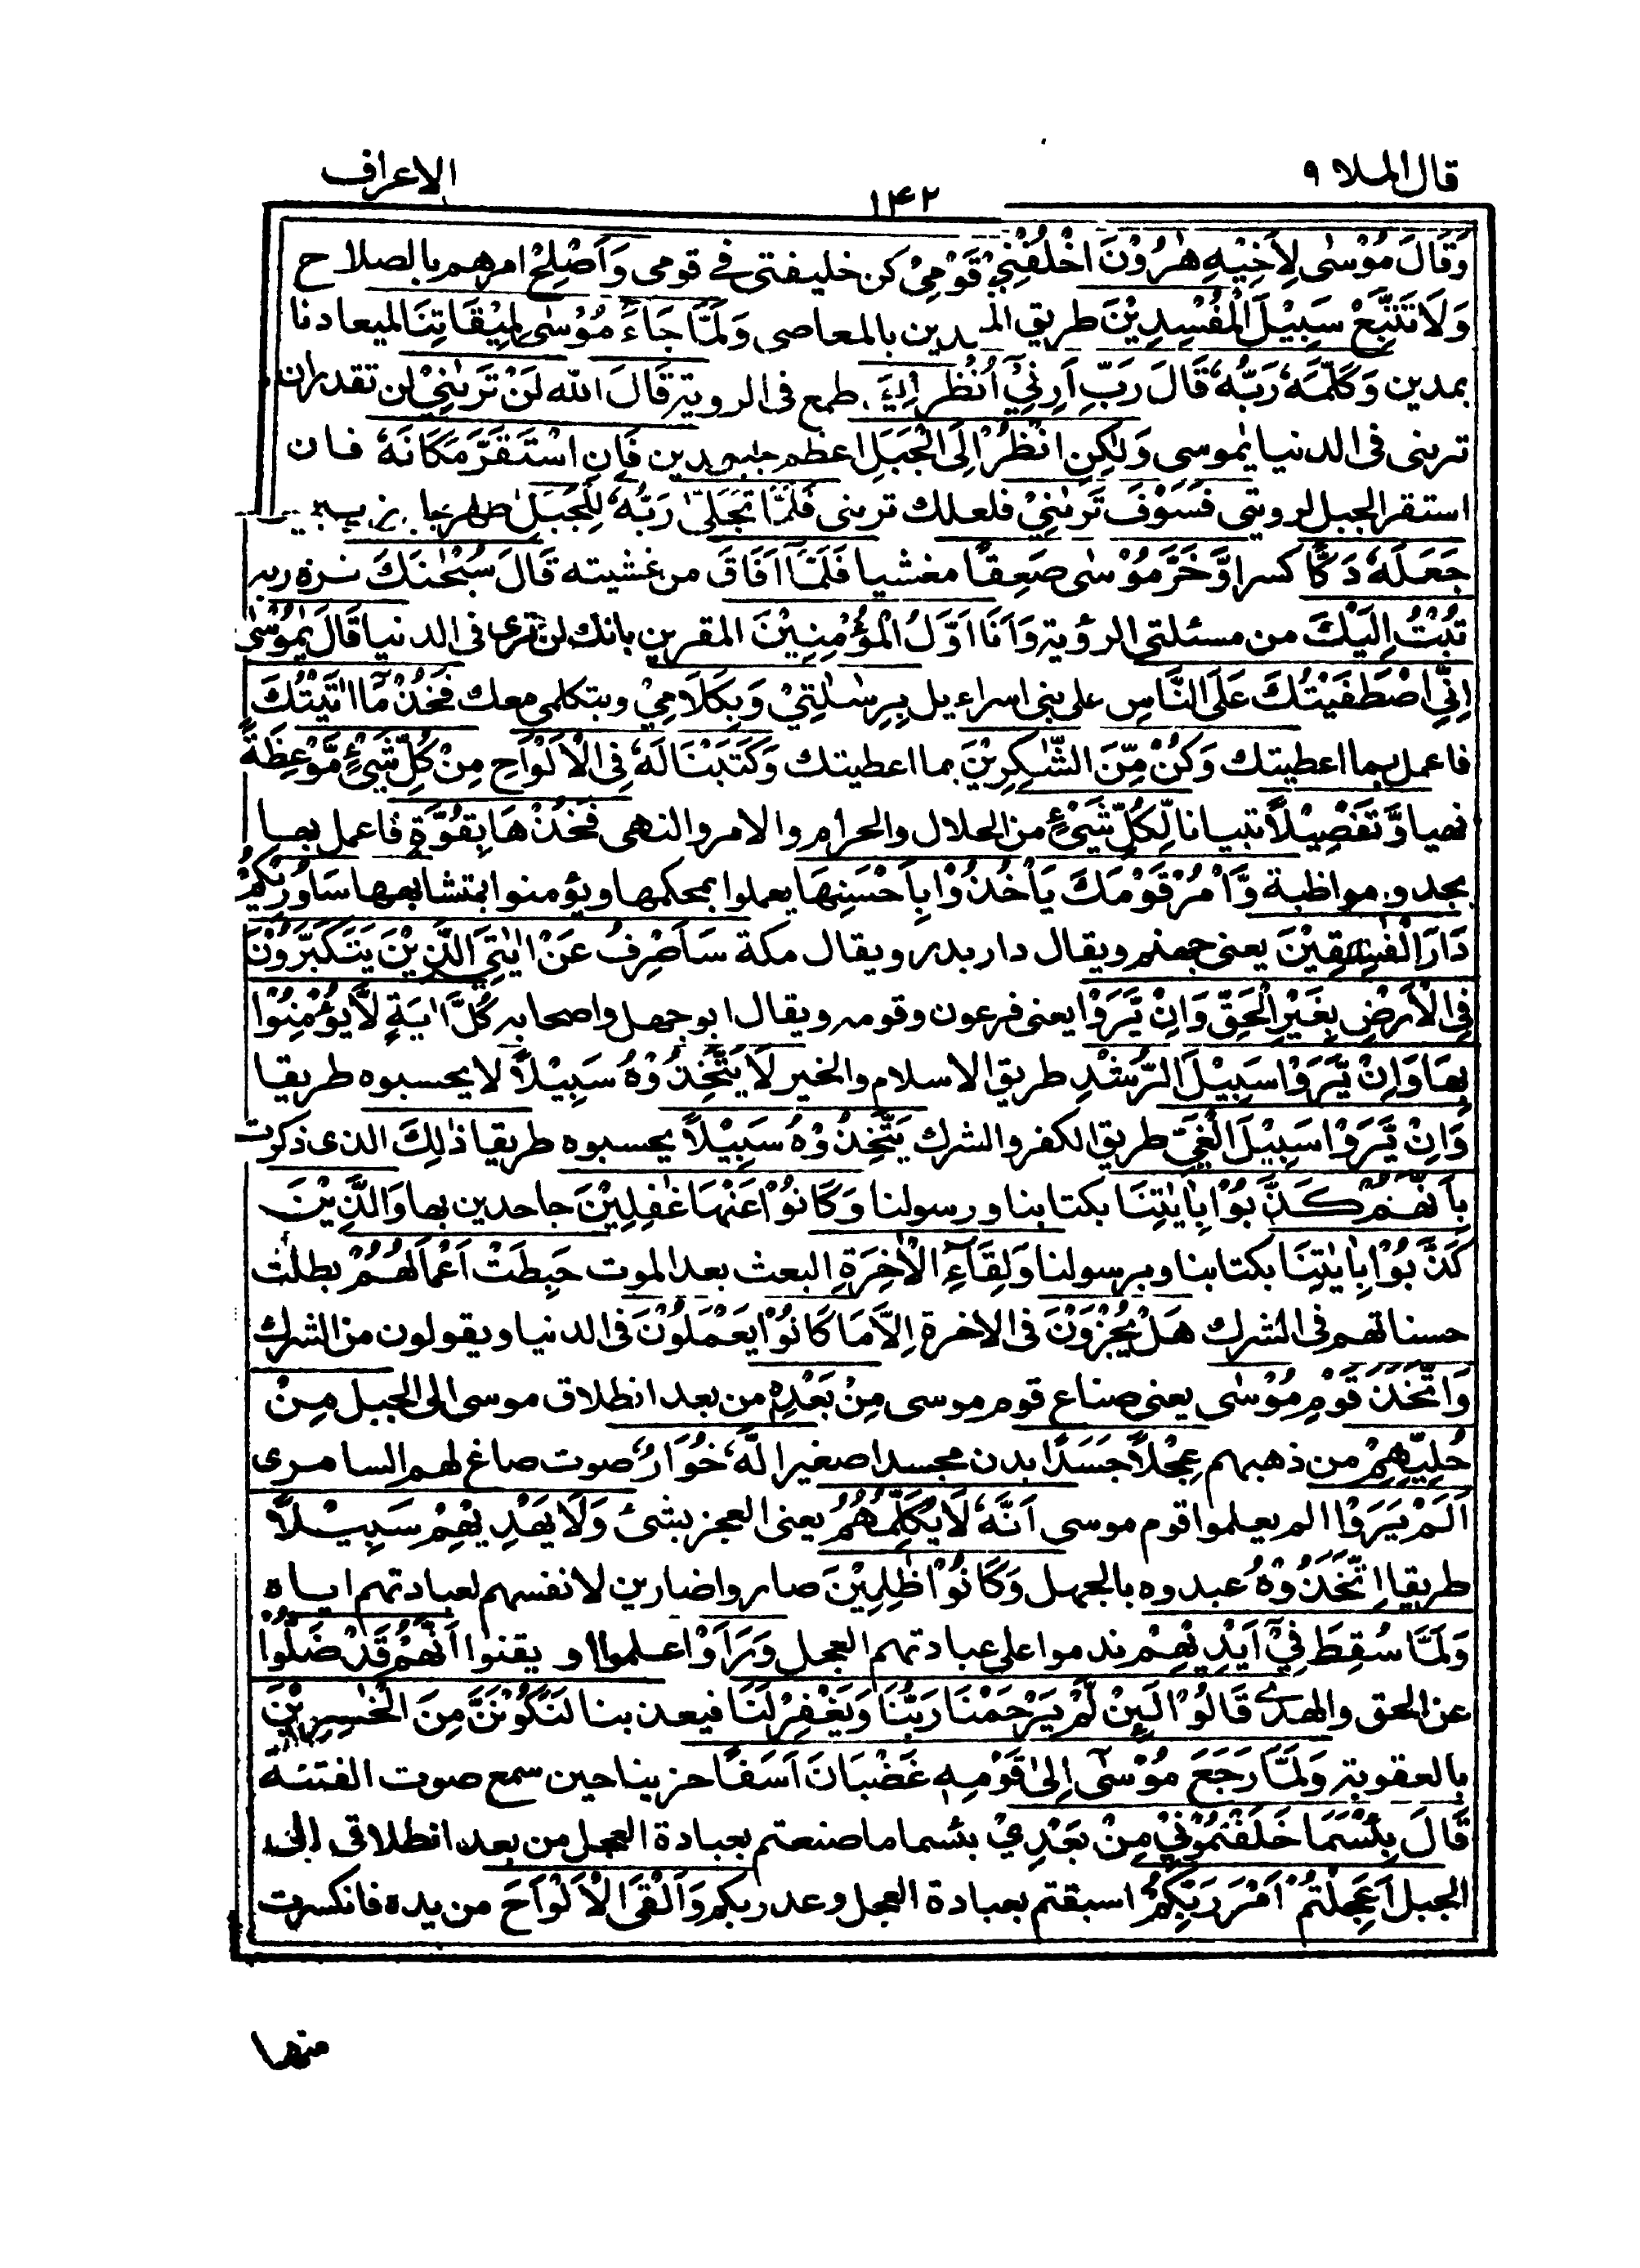 قال الملا ٩
١٤٢
الاعراف
وَقَالَ مُوْسٰى لِاَخِيْهِ هٰرُوْنَ اخْلُفْنِيْ قَوْمِيْ كن خليفتى فے قومى وَاَصْلِحْ امرهم بالصلاح
وَلَا تَتَّبِعْ سَبِيْلَ الْمُفْسِدِيْنَ طريق بالمعاصى وَلَمَّا جَاءَ مُوْسٰى لِمِيْقَاتِنَا لميعادنا
بمدين وَكَلَّمَهٗ رَبُّهٗ قَالَ رَبِّ اَرِنِيْٓ اَنْظُرْ اِلَيْكَ طمع فى الروية قَالَ الله لَنْ تَرٰىنِيْ لن تقدر ان
ترىنى فى الدنيا يٰموسى وَلٰكِنِ انْظُرْ اِلَى الْجَبَلِ اعظم جبل بمدين فَاِنِ اسْتَقَرَّ مَكَانَهٗ فان
استقر الجبل لرويتى فَسَوْفَ تَرٰىنِيْ فلعلك ترىنى فَلَمَّا تَجَلّٰى رَبُّهٗ لِلْجَبَلِ ظهر
جَعَلَهٗ دَكًّا كسرا وَّخَرَّ مُوْسٰى صَعِقًا مغشيا فَلَمَّا اَفَاقَ من غشيته قَالَ سُبْحٰنَكَ نزه ربه
تُبْتُ اِلَيْكَ من مسئلتى الرؤية وَاَنَا اَوَّلُ الْمُؤْمِنِيْنَ المقرين بانك لن ترى فى الدنيا قَالَ يٰمُوْسٰى
اِنِّي اصْطَفَيْتُكَ عَلَى النَّاسِ على بنى اسراءيل بِرِسٰلٰتِيْ وَبِكَلَامِيْ وبتكلمى معك فَخُذْ مَآ اٰتَيْتُكَ
فاعمل بما اعطيتك وَكُنْ مِّنَ الشّٰكِرِيْنَ بما اعطيتك وَكَتَبْنَا لَهٗ فِي الْاَلْوَاحِ مِنْ كُلِّ شَيْءٍ مَّوْعِظَةً
نهيا وَّتَفْصِيْلًا تبيانا لِّكُلِّ شَيْءٍ من الحلال والحرام والامر والنهى فَخُذْهَا بِقُوَّةٍ فاعمل بها
بجد ومواظبة وَّاْمُرْ قَوْمَكَ يَاْخُذُوْا بِاَحْسَنِهَا يعملوا بمحكمها ويؤمنوا بمتشابهها سَاُورِيْكُمْ
دَارَ الْفٰسِقِيْنَ يعنى جهنم ويقال دار بدر ويقال مكة سَاَصْرِفُ عَنْ اٰيٰتِيَ الَّذِيْنَ يَتَكَبَّرُوْنَ
فِي الْاَرْضِ بِغَيْرِ الْحَقِّ وَاِنْ يَّرَوْا يعنى فرعون وقومه ويقال ابو جهل واصحابه كُلَّ اٰيَةٍ لَّا يُؤْمِنُوْا
بِهَا وَاِنْ يَّرَوْا سَبِيْلَ الرُّشْدِ طريق الاسلام والخير لَا يَتَّخِذُوْهُ سَبِيْلًا لا يحسبوه طريقا
وَاِنْ يَّرَوْا سَبِيْلَ الْغَيِّ طريق الكفر والشرك يَتَّخِذُوْهُ سَبِيْلًا يحسبوه طريقا ذٰلِكَ الذى ذكرت
بِاَنَّهُمْ كَذَّبُوْا بِاٰيٰتِنَا بكتابنا ورسولنا وَكَانُوْا عَنْهَا غٰفِلِيْنَ جاحدين بها وَالَّذِيْنَ
كَذَّبُوْا بِاٰيٰتِنَا بكتابنا وبرسولنا وَلِقَآءِ الْاٰخِرَةِ البعث بعد الموت حَبِطَتْ اَعْمَالُهُمْ بطلت
حسناتهم فى الشرك هَلْ يُجْزَوْنَ فى الاخرة اِلَّا مَا كَانُوْا يَعْمَلُوْنَ فى الدنيا ويقولون من الشرك
وَاتَّخَذَ قَوْمُ مُوْسٰى يعنى صناع قوم موسى مِنْ بَعْدِهٖ من بعد انطلاق موسى الى الجبل مِنْ
حُلِيِّهِمْ من ذهبهم عِجْلًا جَسَدًا بدن مجسدا صغيرا لَّهٗ خُوَارٌ صوت صاغ لهم السامرى
اَلَمْ يَرَوْا الم يعلموا قوم موسى اَنَّهٗ لَا يُكَلِّمُهُمْ يعنى العجز بشىء وَلَا يَهْدِيْهِمْ سَبِيْلًا
طريقا اِتَّخَذُوْهُ عبدوه بالجهل وَكَانُوْا ظٰلِمِيْنَ صاروا ضارين لانفسهم لعبادتهم اياه
وَلَمَّا سُقِطَ فِيْٓ اَيْدِيْهِمْ ندموا على عبادتهم العجل وَرَاَوْا علموا و يقنوا اَنَّهُمْ قَدْ ضَلُّوْا
عن الحق والهدے قَالُوْا لَئِنْ لَّمْ يَرْحَمْنَا رَبُّنَا وَيَغْفِرْ لَنَا فيعذبنا لَنَكُوْنَنَّ مِنَ الْخٰسِرِيْنَ
بالعقوبة وَلَمَّا رَجَعَ مُوْسٰٓى اِلٰى قَوْمِهٖ غَضْبَانَ اَسِفًا حزينا حين سمع صوت الفتنة
قَالَ بِئْسَمَا خَلَفْتُمُوْنِيْ مِنْ بَعْدِيْ بئسما ما صنعتم بعبادة العجل من بعد انطلاقى الى
الجبل اَعَجِلْتُمْ اَمْرَ رَبِّكُمْ اسبقتم بعبادة العجل وعد ربكم وَاَلْقَى الْاَلْوَاحَ من يده فانكسرت
منها